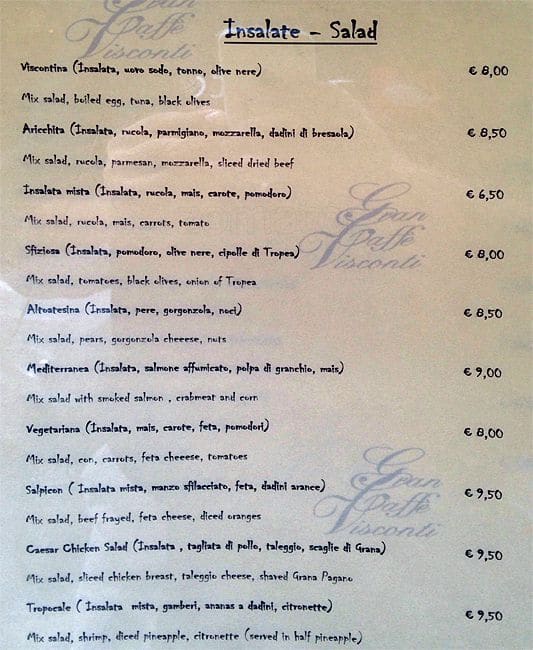 Gran
Caffè
Visconti
Insalate – Salad
Viscontina (Insalata, uovo sodo, tonno, olive nere) € 8,00
Mix salad, boiled egg, tuna, black olives
Aricchita (Insalata, rucola, parmigiano, mozzarella, dadini di bresaola) € 8,50
Mix salad, rucola, parmesan, mozzarella, sliced dried beef
Insalata mista (Insalata, rucola, mais, carote, pomodoro) € 6,50
Mix salad, rucola, mais, carrots, tomato
Gran
Caffè
Visconti
Sfiziosa (Insalata, pomodoro, olive nere, cipolle di Tropea) € 8,00
Mix salad, tomatoes, black olives, onion of Tropea
Altoatesina (Insalata, pere, gorgonzola, noci) € 8,50
Mix salad, pears, gorgonzola cheeese, nuts
Mediterranea (Insalata, salmone affumicato, polpa di granchio, mais) € 9,00
Mix salad with smoked salmon , crabmeat and corn
Vegetariana (Insalata, mais, carote, feta, pomodori) € 8,00
Mix salad, con, carrots, feta cheeese, tomatoes
Gran
Caffè
Visconti
Salpicon ( Insalata mista, manzo sfilacciato, feta, dadini arance) € 9,50
Mix salad, beef frayed, feta cheese, diced oranges
Caesar Chicken Salad (Insalata , tagliata di pollo, taleggio, scaglie di Grana) € 9,50
Mix salad, sliced chicken breast, taleggio cheese, shaved Grana Pagano
Tropocale ( Insalata mista, gamberi, ananas a dadini, citronette) € 9,50
Mix salad, shrimp, diced pineapple, citronette (served in half pineapple)